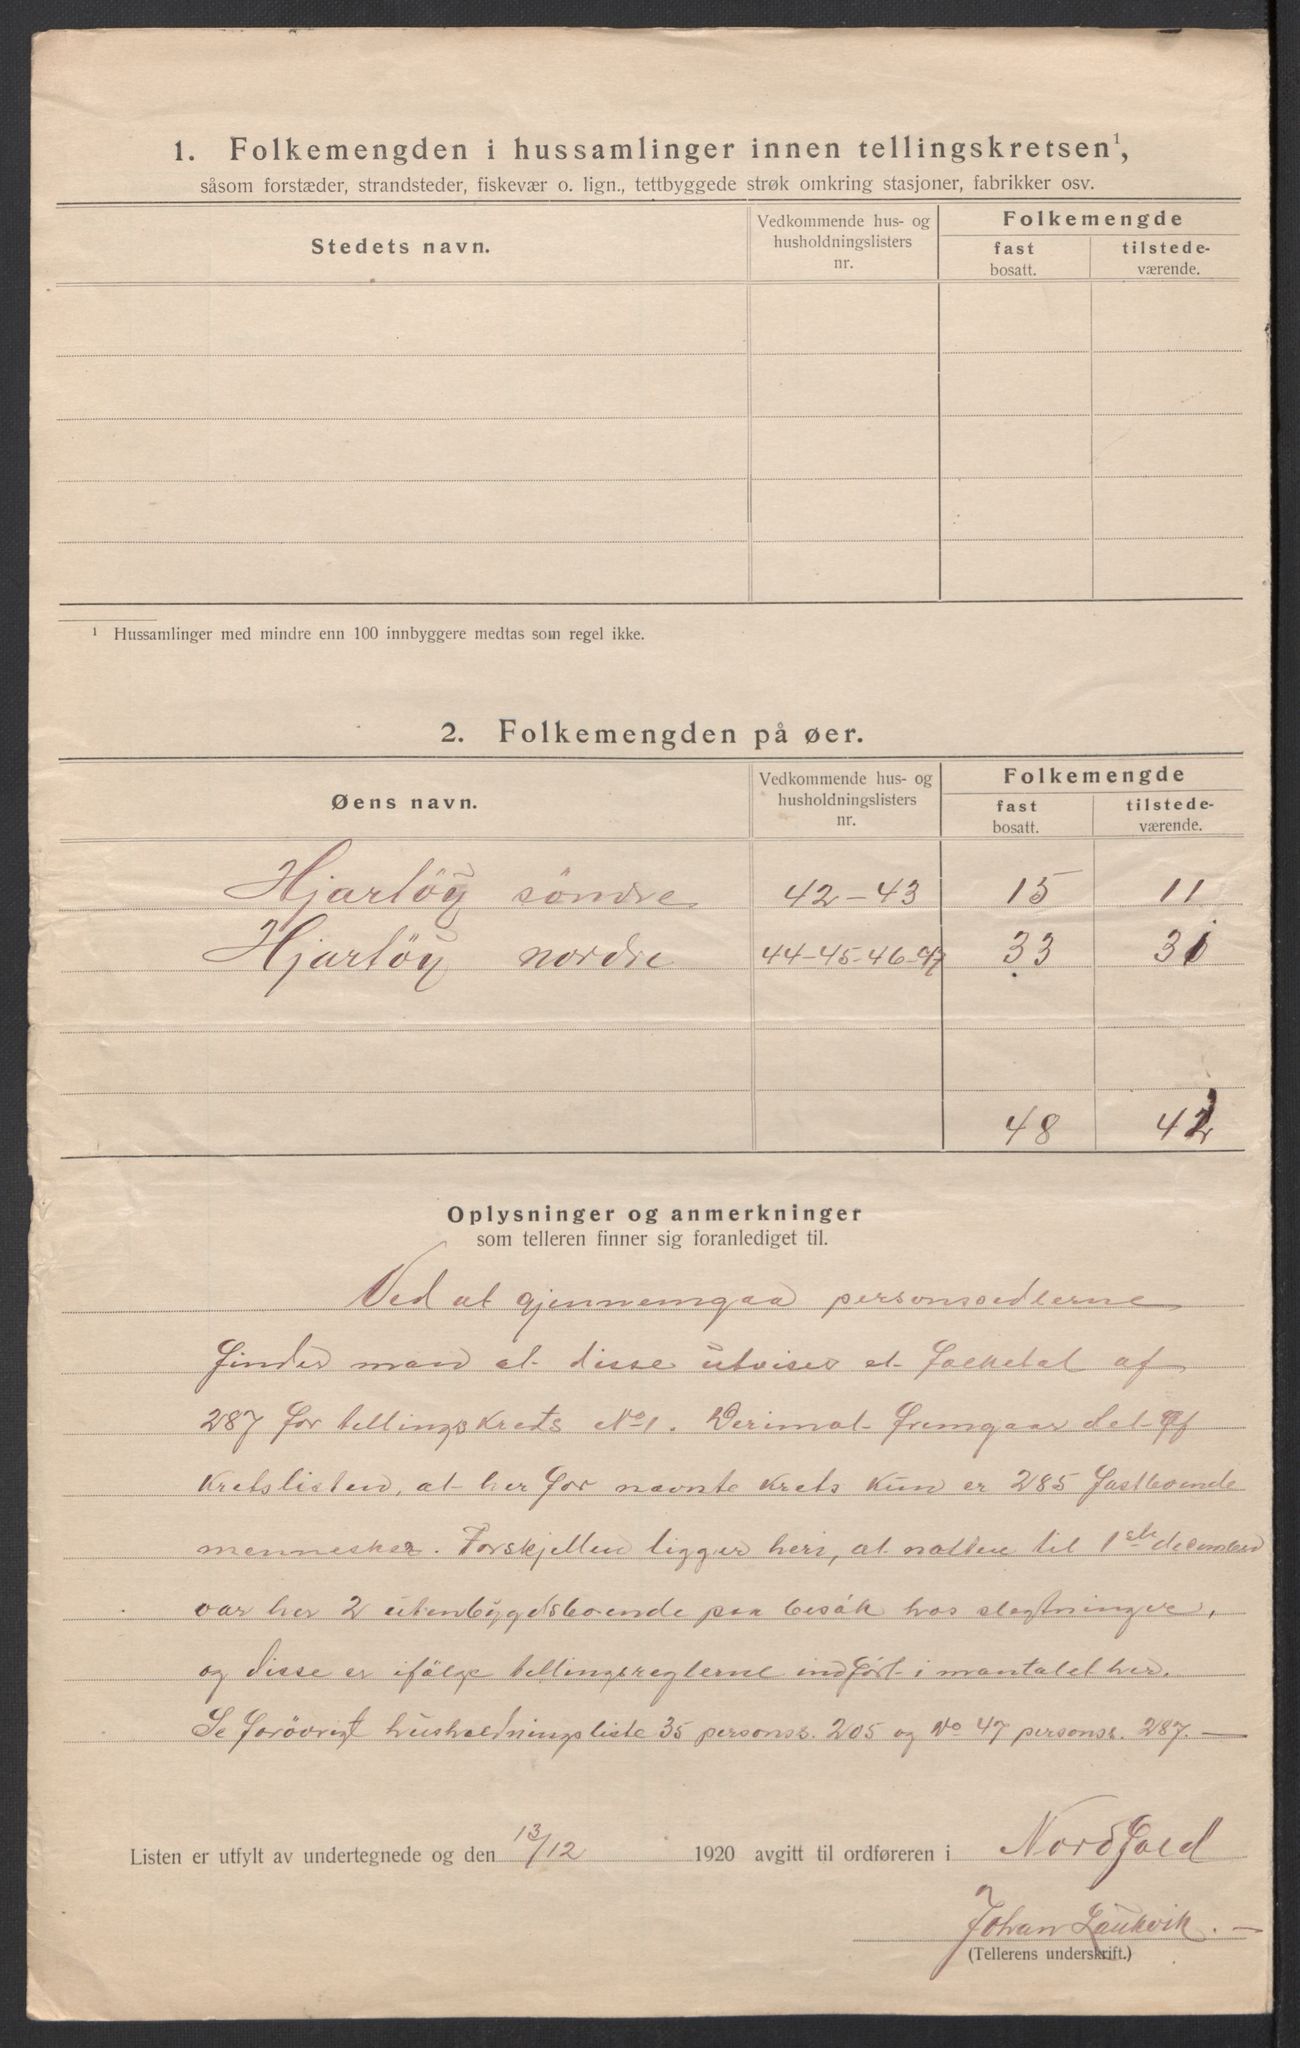 1. Folkemengden i hussamlinger innen tellingskretsen¹,
såsom forstæder, strandsteder, fiskevær o. lign., tettbyggede strøk omkring stasjoner, fabrikker osv.
Stedets navn.
Vedkommende hus- og
husholdningslisters
nr.
Folkemengde
fast
bosatt.
tilstede-
værende.
¹ Hussamlinger med mindre enn 100 innbyggere medtas som regel ikke.
2. Folkemengden på øer.
Øens navn.
Vedkommende hus- og
husholdningslisters
nr.
Folkemengde
fast
bosatt.
tilstede-
værende.
Hjartöy söndre 42-43 15 11
Hjartöy nordre 44-45-46-47 33 31
48 42
Oplysninger og anmerkninger
som telleren finner sig foranlediget til.
Ved at gjennemgaa personsedlerne
finder man at disse utviser et folketal af
287 for tellingskrets No 1. Derimot fremgaar det af
kretslisten, at her for nævnte krets kun er 285 fastboende
mennesker. Forskjellen ligger heri, at natten til 1ste december
var her 2 utenbygdsboende paa besök hos slegtninger,
og disse er ifölge tellingsreglerne indfört i mantalet her.
Se forövrigt husholdningsliste 35 personss. 205 og No 47 personss. 287. —
Listen er utfylt av undertegnede og den 13/12 1920 avgitt til ordføreren i Nordfold
Johan Laukvik. —
(Tellerens underskrift.)